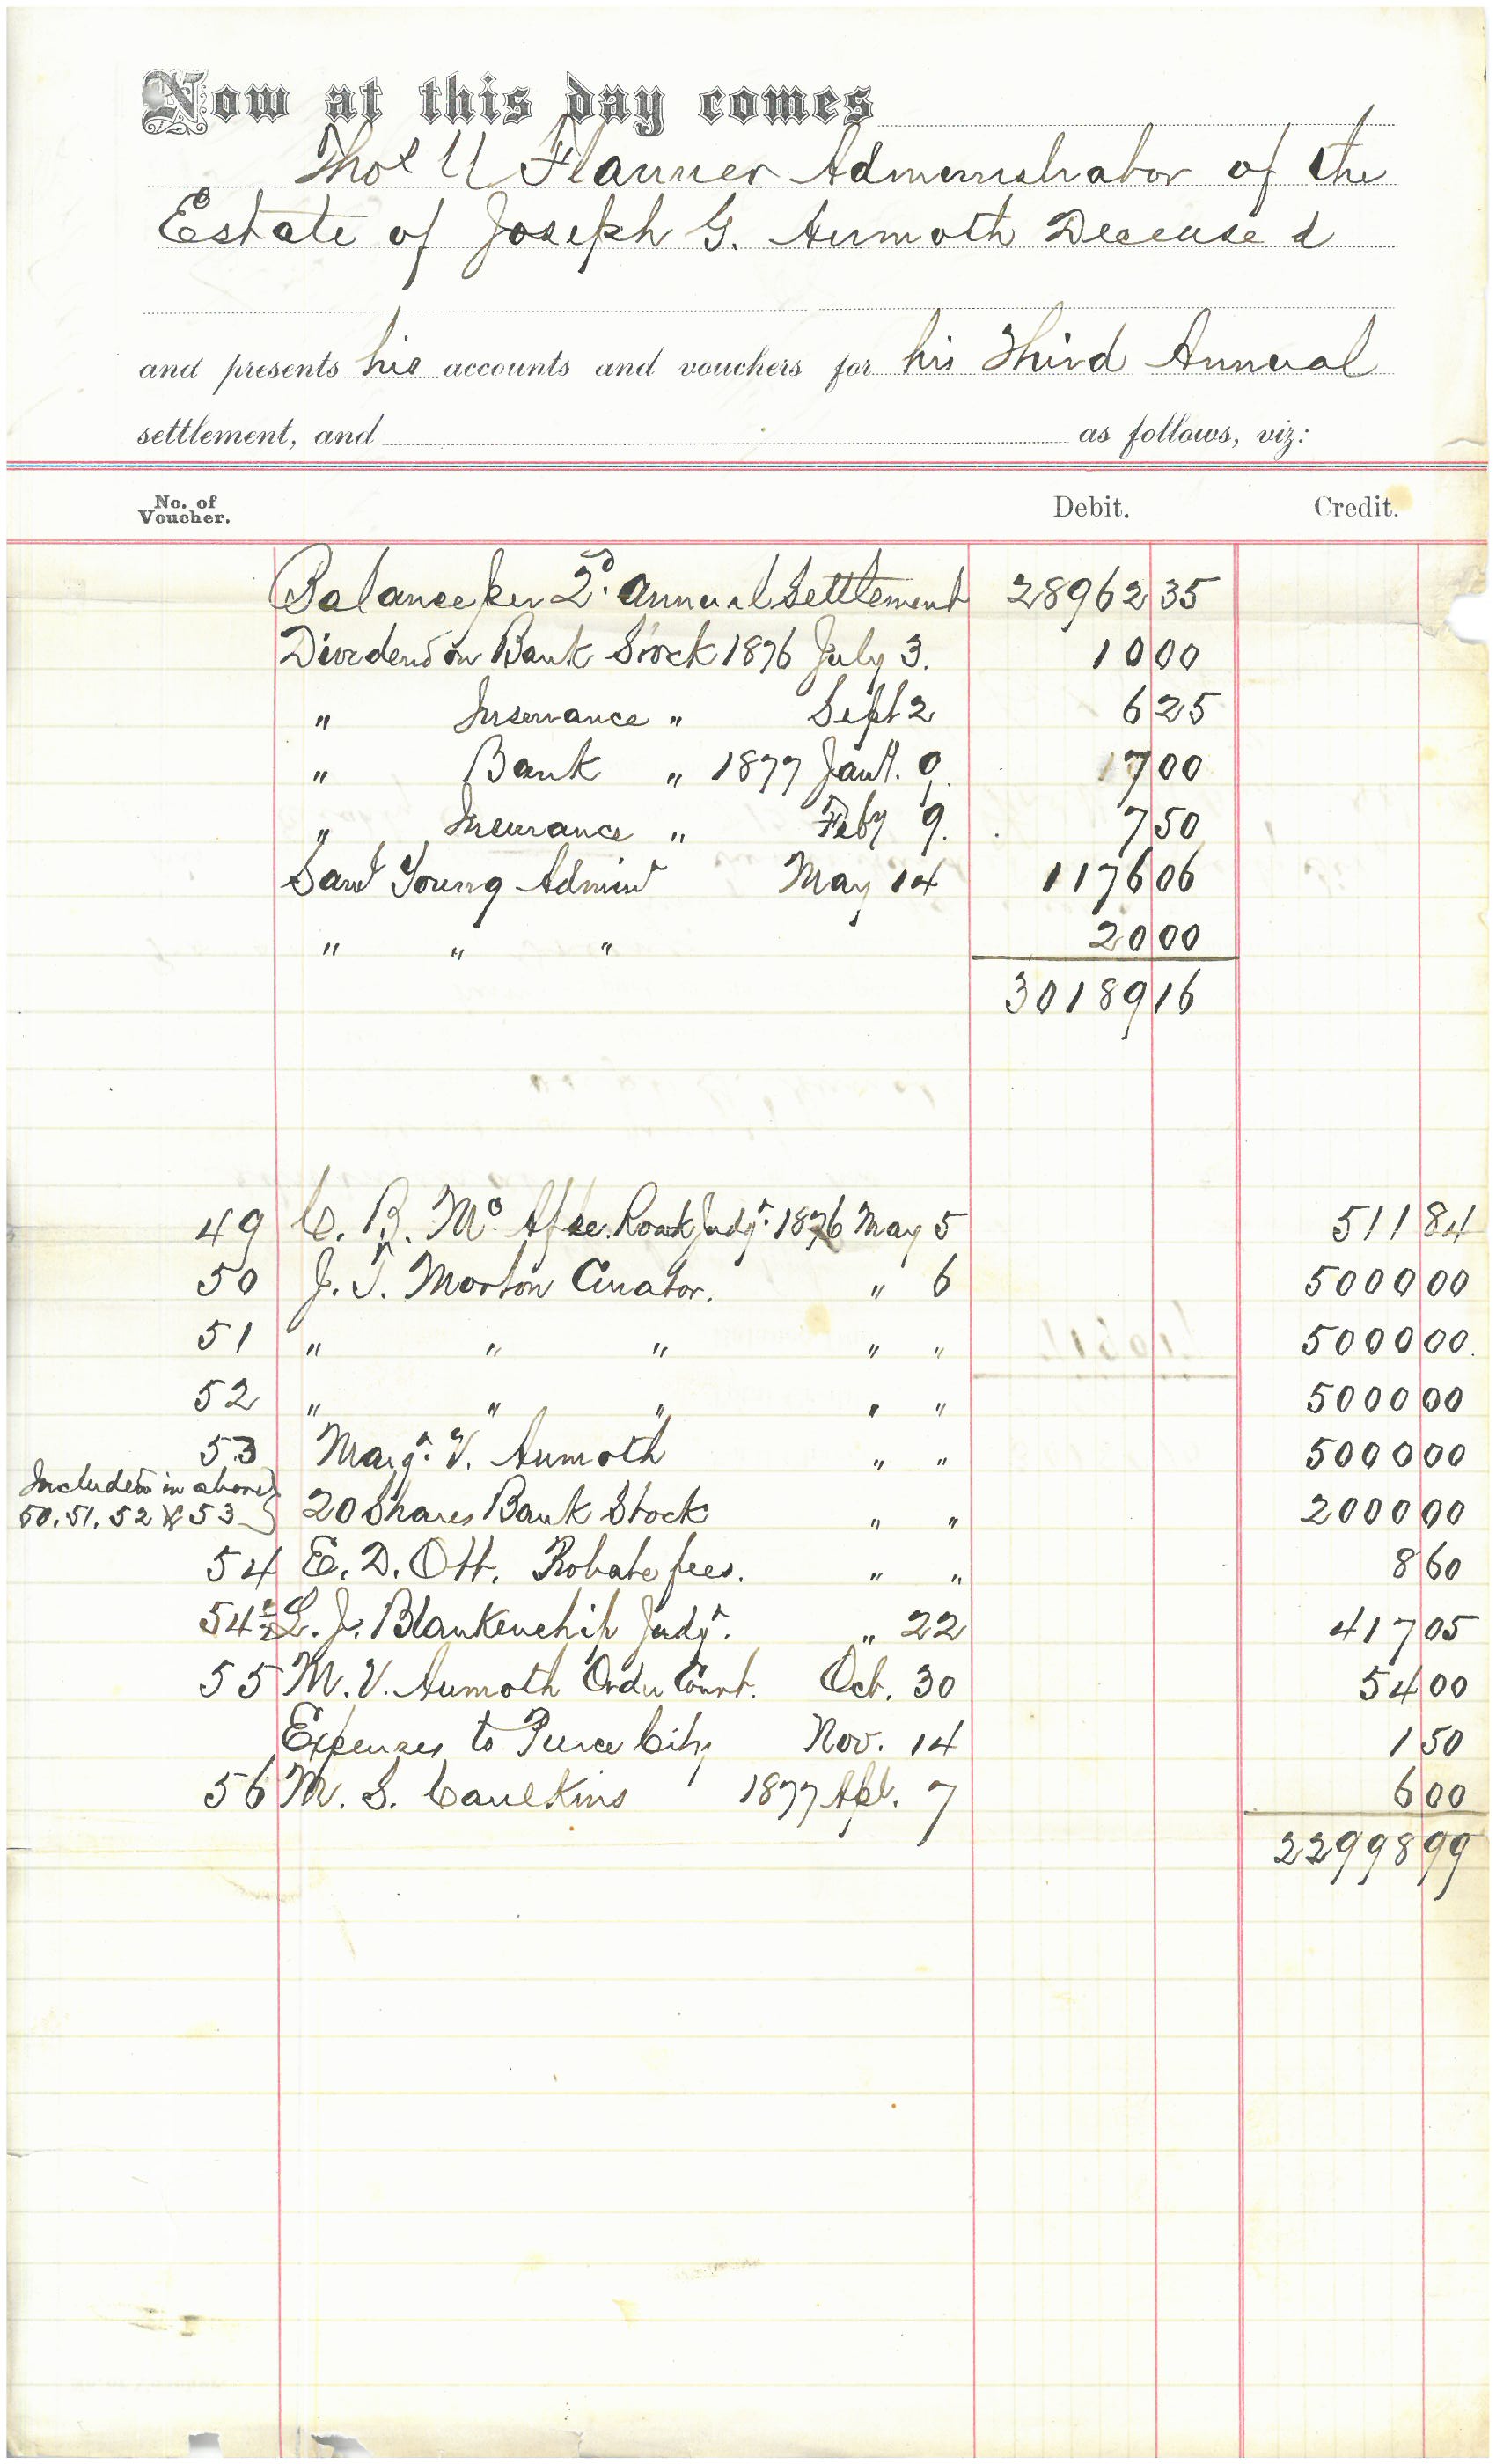 Now at this day comes
Thos U Flanner Administrator of the
Estate of Joseph G. Aumoth Deceased
and presents his accounts and vouchers for his Third Annual
settlement, and as follows, viz:
No. of Voucher. Debit. Credit.
Balance per 2d. Annual Settlement 28962 35
Dividend on Bank Stock 1876 July 3. 10 00
" Insurance " Sept 2 6 25
" Bank " 1877 Jany. 9. 7 00
" Insurance " Feby 9. 7 50
Saml Young Admin May 14 1176 06
" " " 20 00
30189 16
49 C. B. Mc Afee. Judgt. 1876 May 5 511 84
50 J. T. Morton Curator. " 6 5000 00
51 " " " " " 5000 00.
52 " " " " " 5000 00
53 Margt. V. Aumoth " " 5000 00
Included in above
50. 51. 52 & 53 } 20 Shares Bank Stock " " 2000 00
54 E. D. Ott. Probate fees. " " 8 60
54½ L. J. Blankenship Judgt. " 22 417 05
55 M. V. Aumoth Order Court. Oct. 30 54 00
Expenses to Peirce City Nov. 14 1 50
56 M. S. Caulkins 1877 Apl. 7 6 00
22998 99